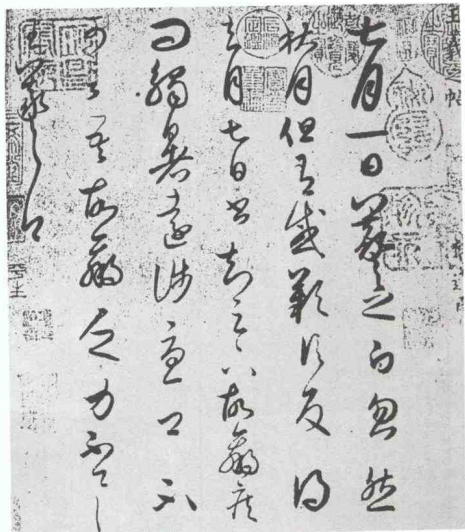 王羲之帖
七月一日羲之白忽然
秋月但有感歎信反得
去月七日書知足下故羸疾
問觸暑遠涉憂卿不
可言吾故羸乏力不具
王羲之白